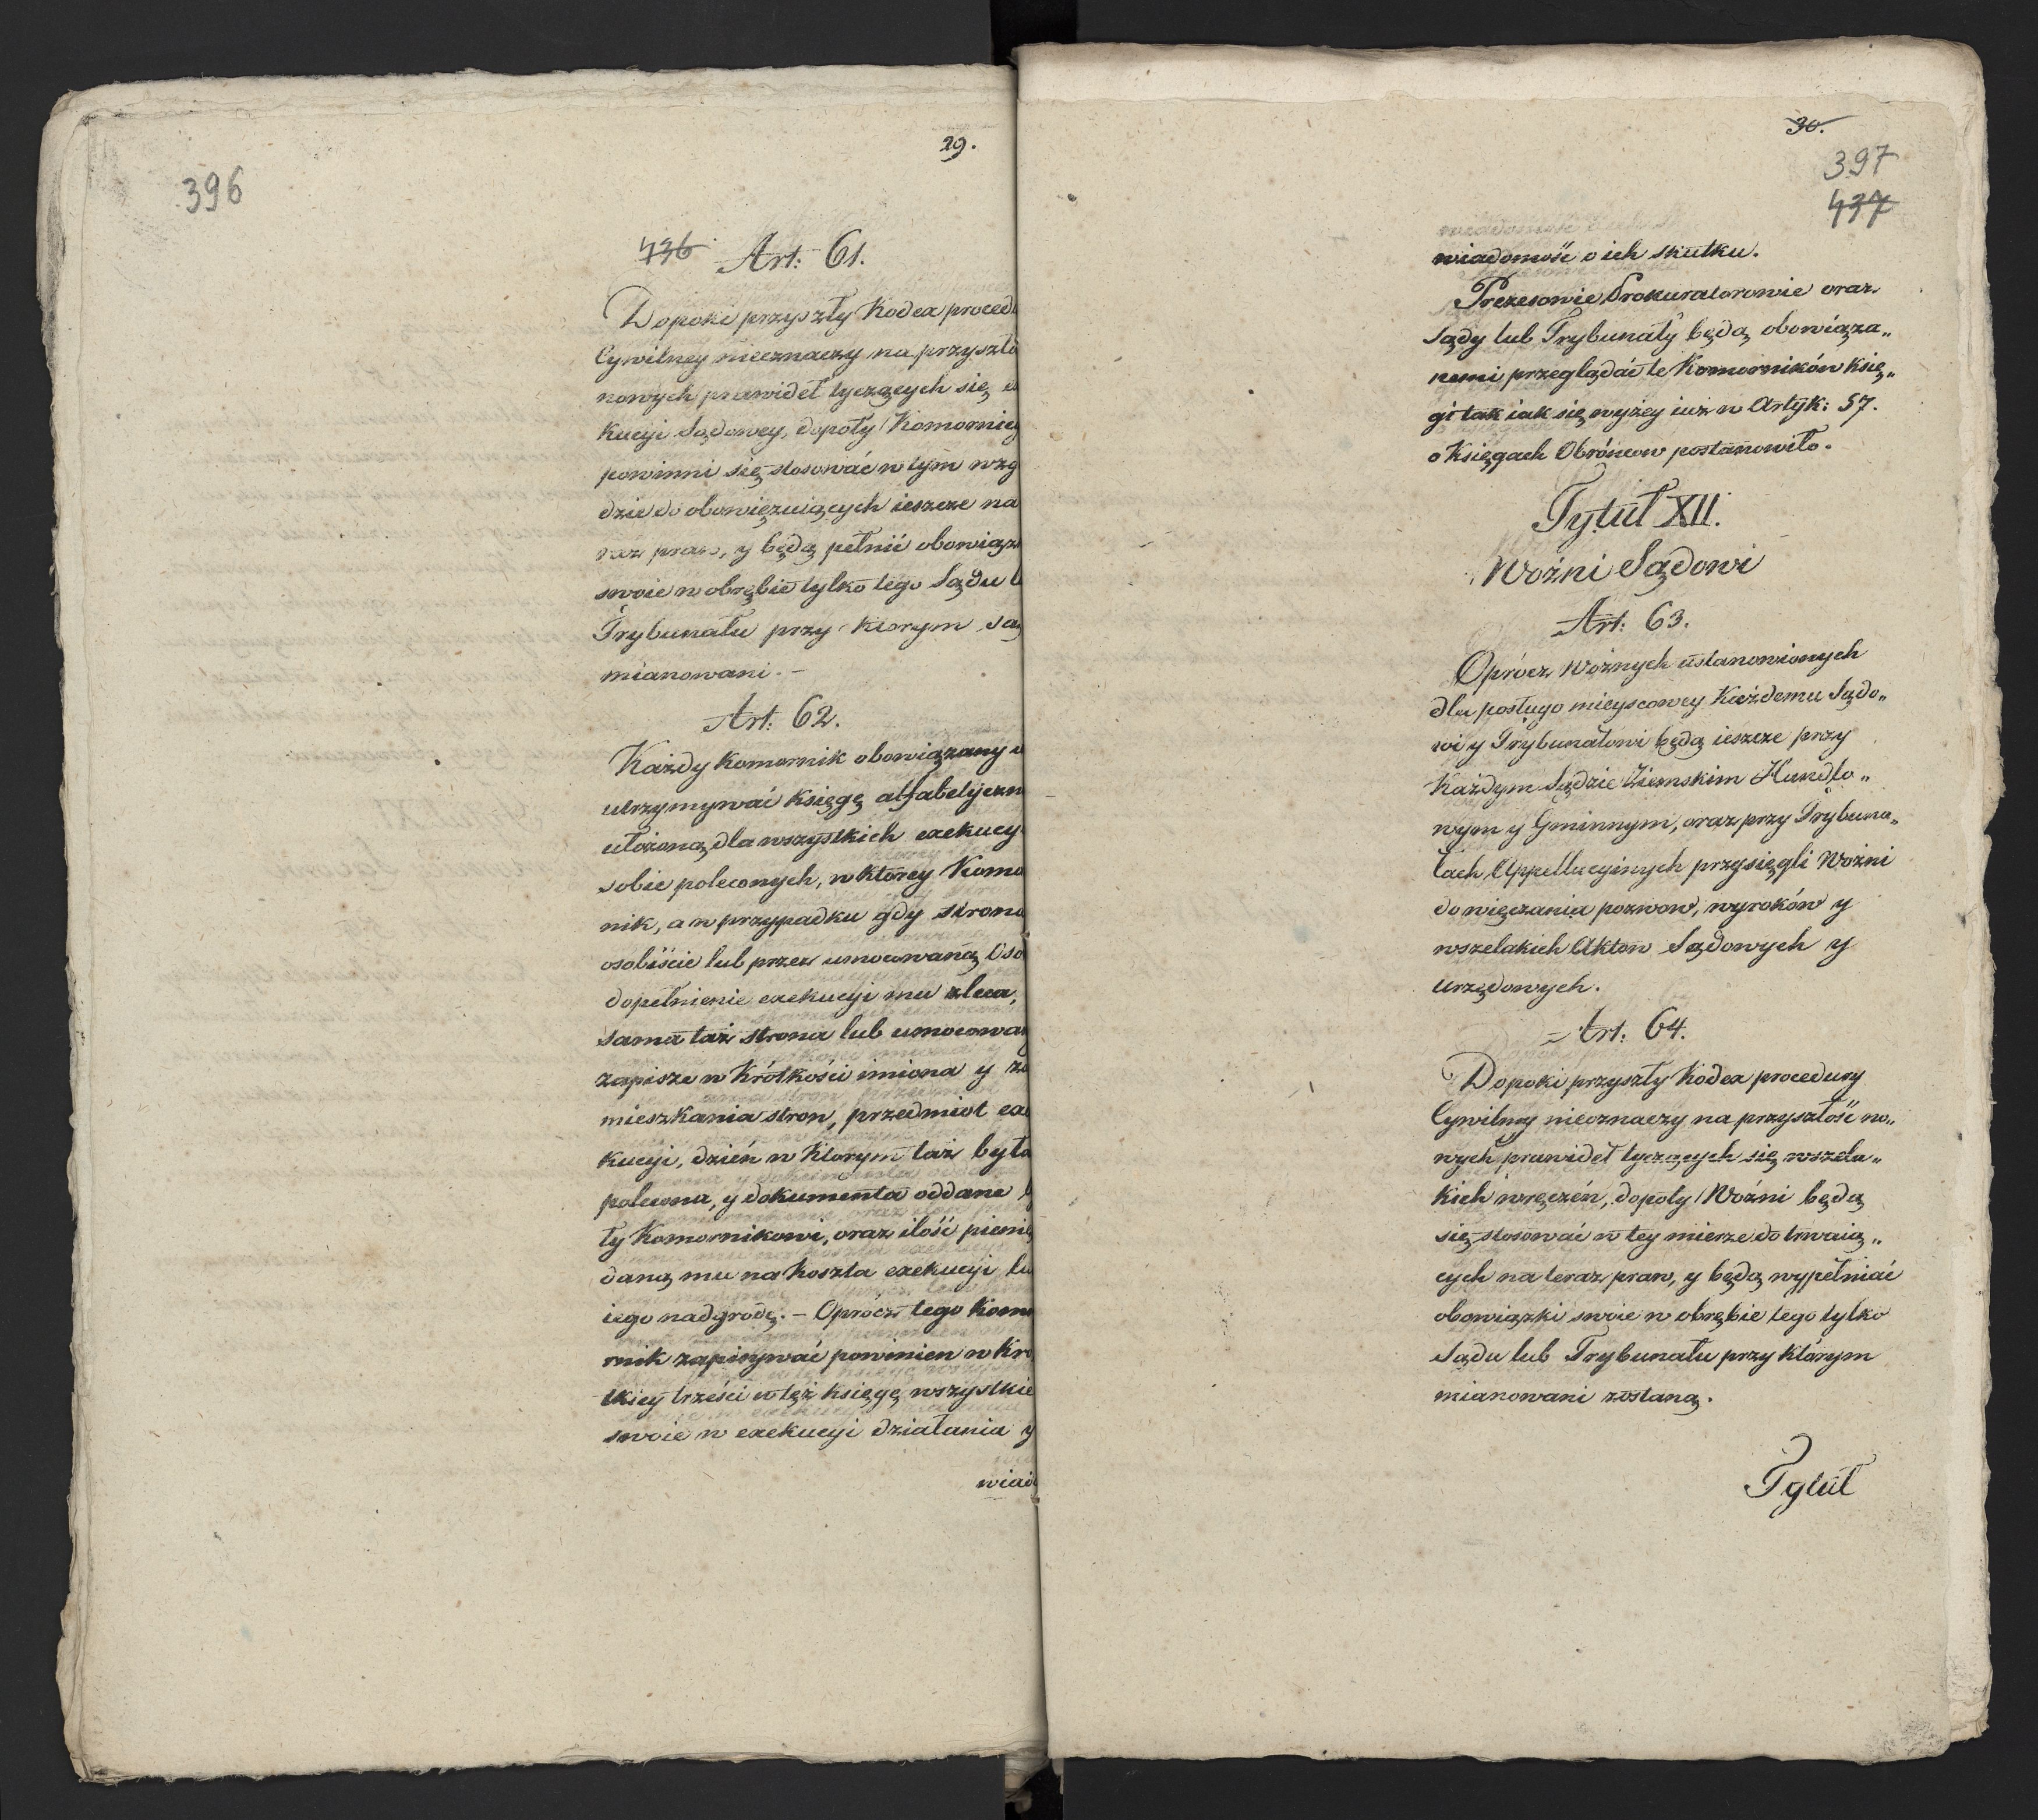 29.
396
436
Art: 61.
Dopoki przyszły Kodex proced
Cywilney nieoznaczy na przyszło
nowych prawideł tyczących się e
kucyi Sądowey, dopoty Komornicy
powinni się stosować w tym wzg
dzie do obowięzuiących ieszcze na
raz praw, y będą pełnić obowiązk
swoie w obrębie tylko tego Sądu l
Trybunału przy ktorym są
mianowani. –
Art: 62.
Każdy Komornik obowiązany
utrzymywać księgę alfabetyczn
ułożoną dla wszystkich exekucy
sobie poleconych, w ktorey Komo
nik, a w przypadku gdy strona
osobiście lub przez umocowaną Oso
dopełnienie exekucyi mu zleca,
sama taż strona lub umocowan
zapisze w Krótkości imiona y za
mieszkania stron, przedmiot exe
kucyi, dzień w Ktorym taż była
polecona, y dokumenta oddane
ty Komornikowi, oraz ilość pienię
daną mu na Koszta exekucyi lu
iego nadgrodę. – Oprócz tego Komo
rnik zapisywać powinien w Kró
tkiey treści w też księgę wszystkie
swoie w exekucyi działania y
wiad
30.
397
437
wiadomość o ich skutku.
Prezesowie Prokuratorowie oraz
Sądy lub Trybunały będą obowiąza„
nemi przeglądać te Komorników księ„
gi tak iak się wyżey iuż w Artyk: 57.
o Księgach Obrońcow postanowiło.
Tytuł XII.
Woźni Sądowi
Art: 63.
Oprócz Woźnych ustanowionych
dla posługo mieyscowey Każdemu Sądo„
wi y Trybunałowi będą ieszcze przy
Każdym Sądzie Ziemskim Handlo„
wym y Gminnym, oraz przy Trybuna„
łach Appellacyinych przysięgli Woźni
do więczania pozwow, wyroków y
wszelakich Aktow Sądowych y
urzędowych.
Art: 64.
Dopoki przyszły Kodex procedury
Cywilney nieoznaczy na przyszłość no„
wych prawideł tyczących się wszela„
kich wręczeń, dopoty Woźni będą
się stosować w tey mierze do trwaią„
cych na teraz praw, y będą wypełniać
obowiązki swoie w obrębie tego tylko
Sądu lub Trybunału przy którym
mianowani zostaną.
Tytuł